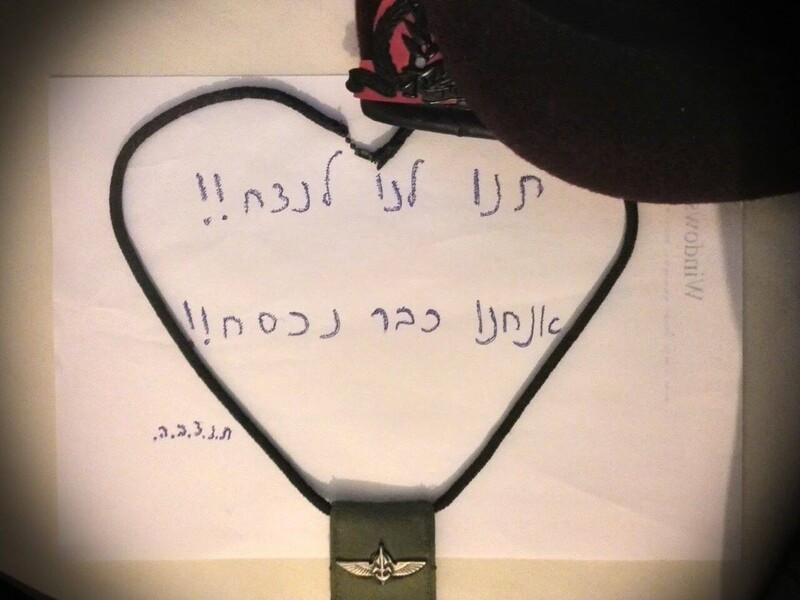 תנו לנו לנצח!!
אנחנו כבר נכסח!!
ת.נ.צ.ב.ה.
Windows